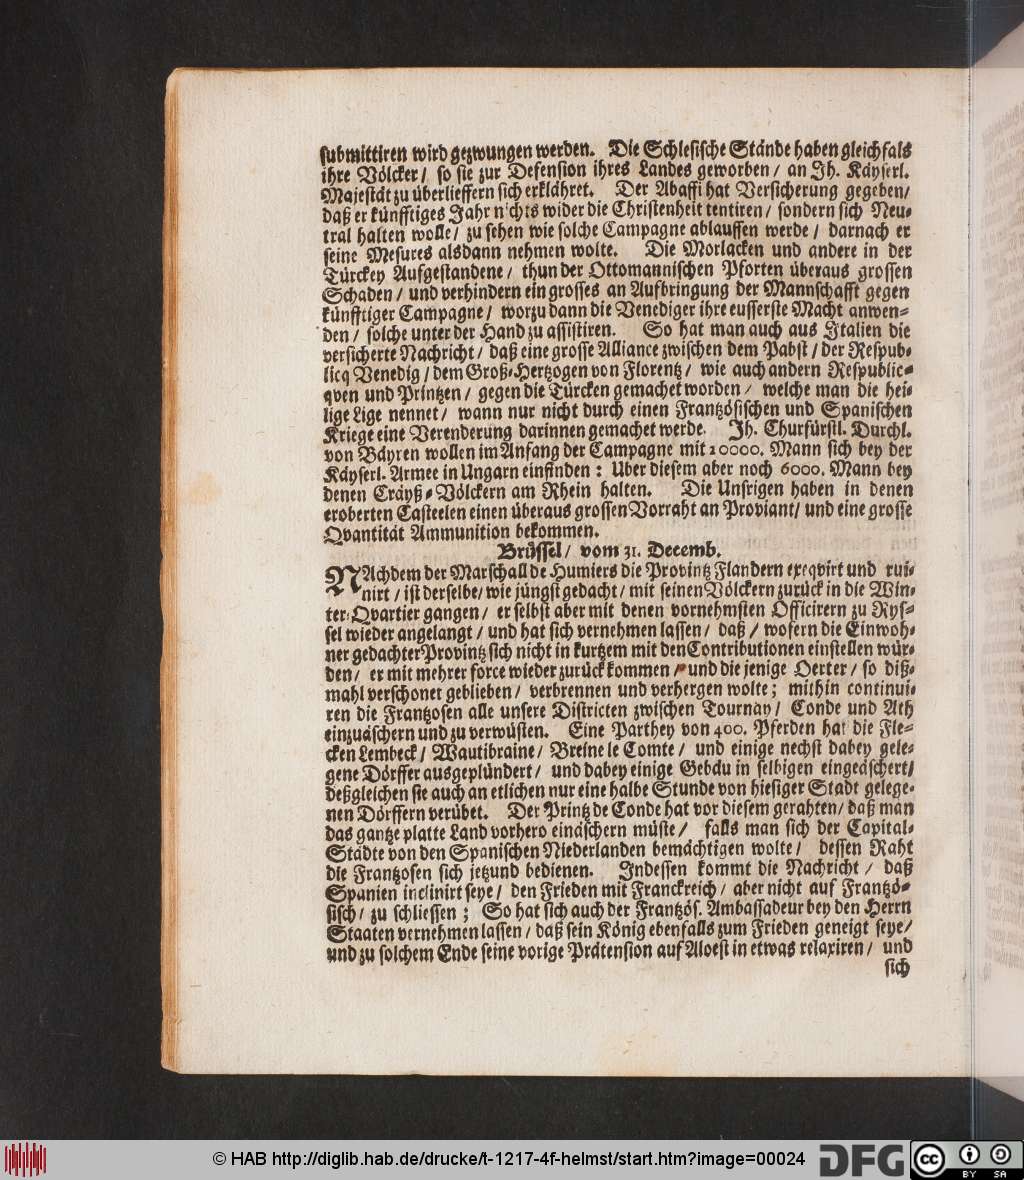 submittiren wird gezwungen werden. Die Schlesische Stände haben gleichfals
ihre Völcker / so sie zur Defension ihres Landes geworben / an Ih. Käyserl.
Majestät zu überlieffern sich erklähret. Der Abaffi hat Versicherung gegeben /
daß er künfftiges Jahr nichts wider die Christenheit tentiren / sondern sich Neu-
tral halten wolle / zu sehen wie solche Campagne ablauffen werde / darnach er
seine Mesures alsdann nehmen wolte. Die Morlacken und andere in der
Türckey Aufgestandene / thun der Ottomannischen Pforten überaus grossen
Schaden / und verhindern ein grosses an Aufbringung der Mannschafft gegen
künfftiger Campagne / worzu dann die Venediger ihre eusserste Macht anwen-
den / solche unter der Hand zu assistiren. So hat man auch aus Italien die
versicherte Nachricht / daß eine grosse Alliance zwischen dem Pabst / der Respub-
licq Venedig / dem Groß-Hertzogen von Florentz / wie auch andern Respublic-
qven und Printzen / gegen die Türcken gemachet worden / welche man die hei-
lige Lige nennet / wann nur nicht durch einen Frantzösischen und Spanischen
Kriege eine Verenderung darinnen gemachet werde. Ih. Churfürstl. Durchl.
von Bäyren wollen im Anfang der Campagne mit 20000. Mann sich bey der
Käyserl. Armee in Ungarn einfinden : Uber diesem aber noch 6000. Mann bey
denen Cräyß-Völckern am Rhein halten. Die Unsrigen haben in denen
eroberten Casteelen einen überaus grossen Vorraht an Proviant / und eine grosse
Qvantität Ammunition bekommen.
Brüssel / vom 31. Decemb.
NAchdem der Marschall de Humiers die Provintz Flandern exeqvirt und rui-
nirt / ist derselbe / wie jüngst gedacht / mit seinen Völckern zurück in die Win-
ter-Qvartier gangen / er selbst aber mit denen vornehmsten Officirern zu Rys-
sel wieder angelangt / und hat sich vernehmen lassen / daß / wofern die Einwoh-
ner gedachter Provintz sich nicht in kurtzem mit den Contributionen einstellen wür-
den / er mit mehrer force wieder zurück kommen / und die jenige Oerter / so diß-
mahl verschonet geblieben / verbrennen und verhergen wolte ; mithin continui-
ren die Frantzosen alle unsere Districten zwischen Tournay / Conde und Ath
einzuäschern und zu verwüsten. Eine Parthey von 400. Pferden hat die Fle-
cken Lembeck / Wautibraine / Breine le Comte / und einige nechst dabey gele-
gene Dörffer ausgeplündert / und dabey einige Gebäu in selbigen eingeäschert /
deßgleichen sie auch an etlichen nur eine halbe Stunde von hiesiger Stadt gelege-
nen Dörffern verübet. Der Printz de Conde hat vor diesem gerahten / daß man
das gantze platte Land vorhero einäschern müste / falls man sich der Capital-
Städte von den Spanischen Niederlanden bemächtigen wolte / dessen Raht
die Frantzosen sich jetzund bedienen. Indessen kommt die Nachricht / daß
Spanien inclinirt seye / den Frieden mit Franckreich / aber nicht auf Frantzö-
sisch / zu schliessen ; So hat sich auch der Frantzös. Ambassadeur bey den Herrn
Staaten vernehmen lassen / daß sein König ebenfalls zum Frieden geneigt seye /
und zu solchem Ende seine vorige Prätension auf Aloest in etwas relaxiren / und
sich
© HAB http://diglib.hab.de/drucke/t-1217-4f-helmst/start.htm?image=00024
DFG
cc BY SA